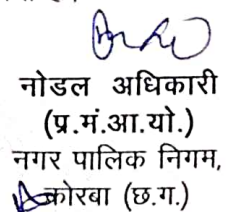 नोडल अधिकारी
(प्र.मं.आ.यो.)
नगर पालिक निगम,
कोरबा (छ.ग.)